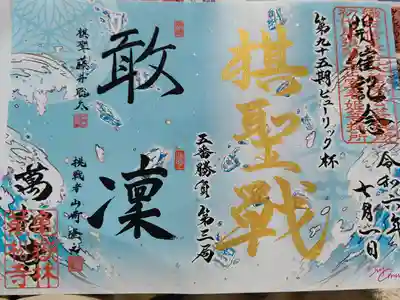 開催記念
令和六年
七月一日
第九十五期ヒューリック杯
棋聖戦
五番勝負 第三局
敢
凜
棋聖 藤井聡太
挑戦者 山崎隆之
萬